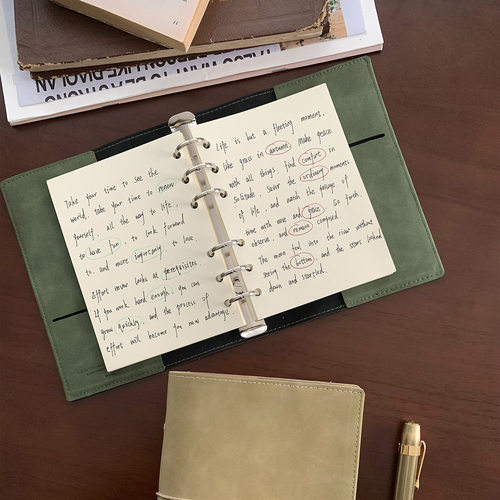 BE A STRONG
Take your time to see the
world, take your time to renew
yourself, all the way to life,
to have fun, to look forward
to, and more importantly to love
Effort never looks at prerequisites
If you work hard enough, you can
grow quickly, and the process of
effort will become you now advantage.
Life is but a fleeting moment,
like grass in autumn Make peace
with all things, find comfort in
Solitude. Savor the ordinary moments
of life, and watch the passage of
time with ease and grace. Go forth,
observe, and remain composed.
The moon fell into the river without
seeing the bottom and the stars looked
down and startled.